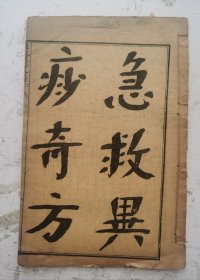 急救異
痧奇方